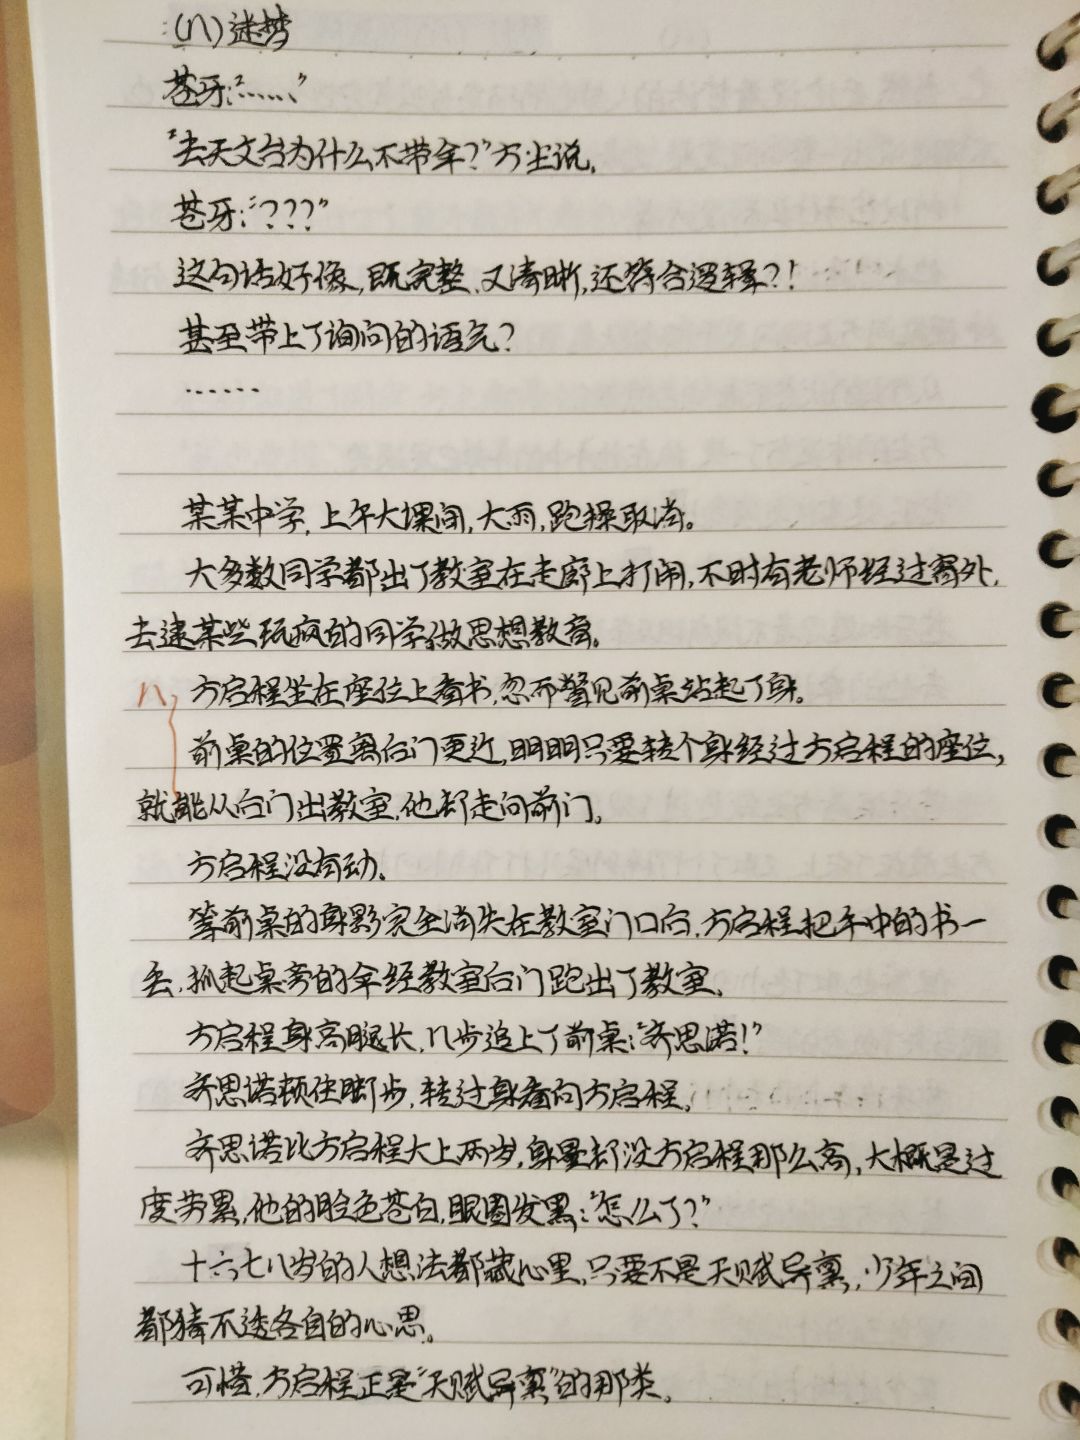 (八)迷梦
苍牙:“……”
“去天文台为什么不带伞?”方尘说。
苍牙:“???”
这句话好像,既完整、又清晰,还符合逻辑?!
甚至带上了询问的语气?
……
某某中学,上午大课间,大雨,跑操取消。
大多数同学都出了教室在走廊上打闹,不时有老师经过窗外,
去逮某些玩疯的同学做思想教育。
八
方启程坐在座位上看书,忽而瞥见前桌站起了身。
前桌的位置离后门更近,明明只要转个身经过方启程的座位,
就能从后门出教室,他却走向前门。
方启程没有动。
等前桌的身影完全消失在教室门口后,方启程把手中的书一
丢,抓起桌旁的伞经教室后门跑出了教室。
方启程身高腿长,几步追上了前桌:“齐思诺!”
齐思诺顿住脚步,转过身看向方启程。
齐思诺比方启程大上两岁,身量却没方启程那么高,大概是过
度劳累,他的脸色苍白,眼圈发黑:“怎么了?”
十六七八岁的人想法都藏心里,只要不是天赋异禀,少年之间
都猜不透各自的心思。
可惜,方启程正是“天赋异禀”的那类。